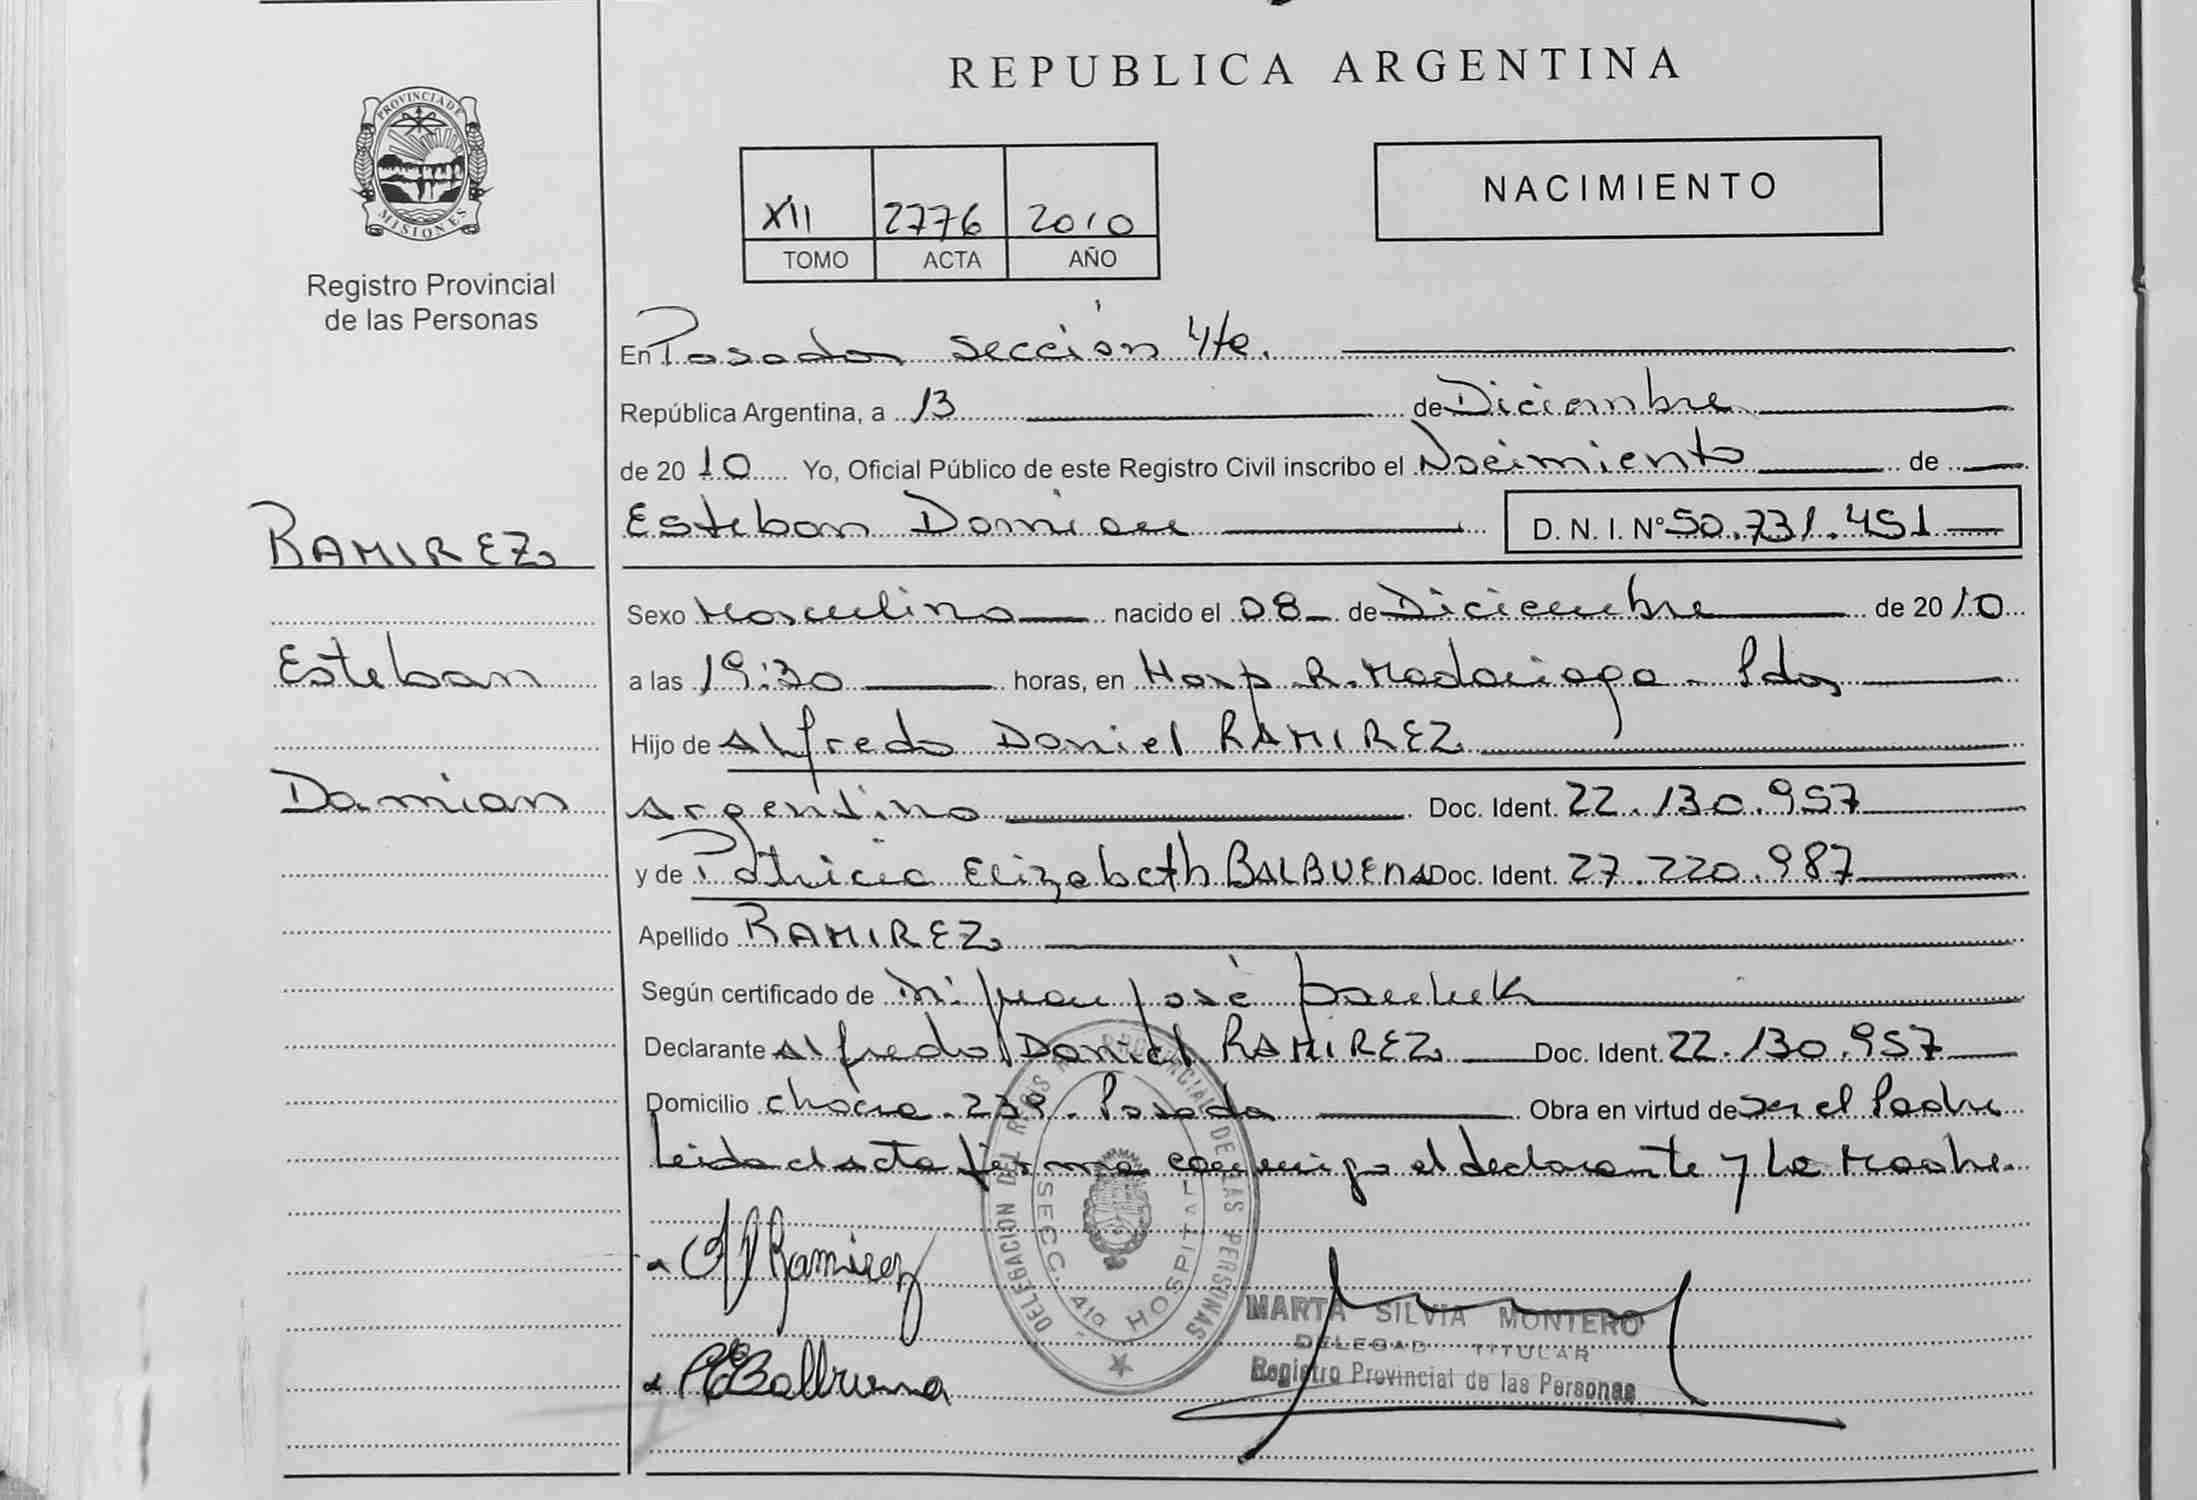 REPUBLICA ARGENTINA
PROVINCIA DE
MISIONES
Registro Provincial
de las Personas
XII 2776 2010
TOMO ACTA AÑO
NACIMIENTO
En Posadas sección 4ta.
República Argentina, a 13 de Diciembre
de 2010 Yo, Oficial Público de este Registro Civil inscribo el Nacimiento de
Esteban Damian D. N. I. Nº 50.731.451
RAMIREZ
Esteban
Damian
Sexo Masculino nacido el 08 de Diciembre de 2010
a las 19:30 horas, en Hosp. R. Madariaga - Pdas
Hijo de Alfredo Daniel RAMIREZ
Argentino Doc. Ident. 22.130.957
y de Patricia Elizabeth BALBUENA Doc. Ident. 27.220.987
Apellido RAMIREZ
Según certificado de Dr. Juan José
Declarante Alfredo Daniel RAMIREZ Doc. Ident. 22.130.957
Domicilio chacra 239 - Posadas Obra en virtud de ser el Padre
Leida el acta firma conmigo el declarante y la Madre.
A Ramirez
PEBalbuena
DELEGACION DEL REGISTRO PROVINCIAL DE LAS PERSONAS
SECC. 4ta HOSPITAL
MARTA SILVIA MONTERO
DELEGAD TITULAR
Registro Provincial de las Personas